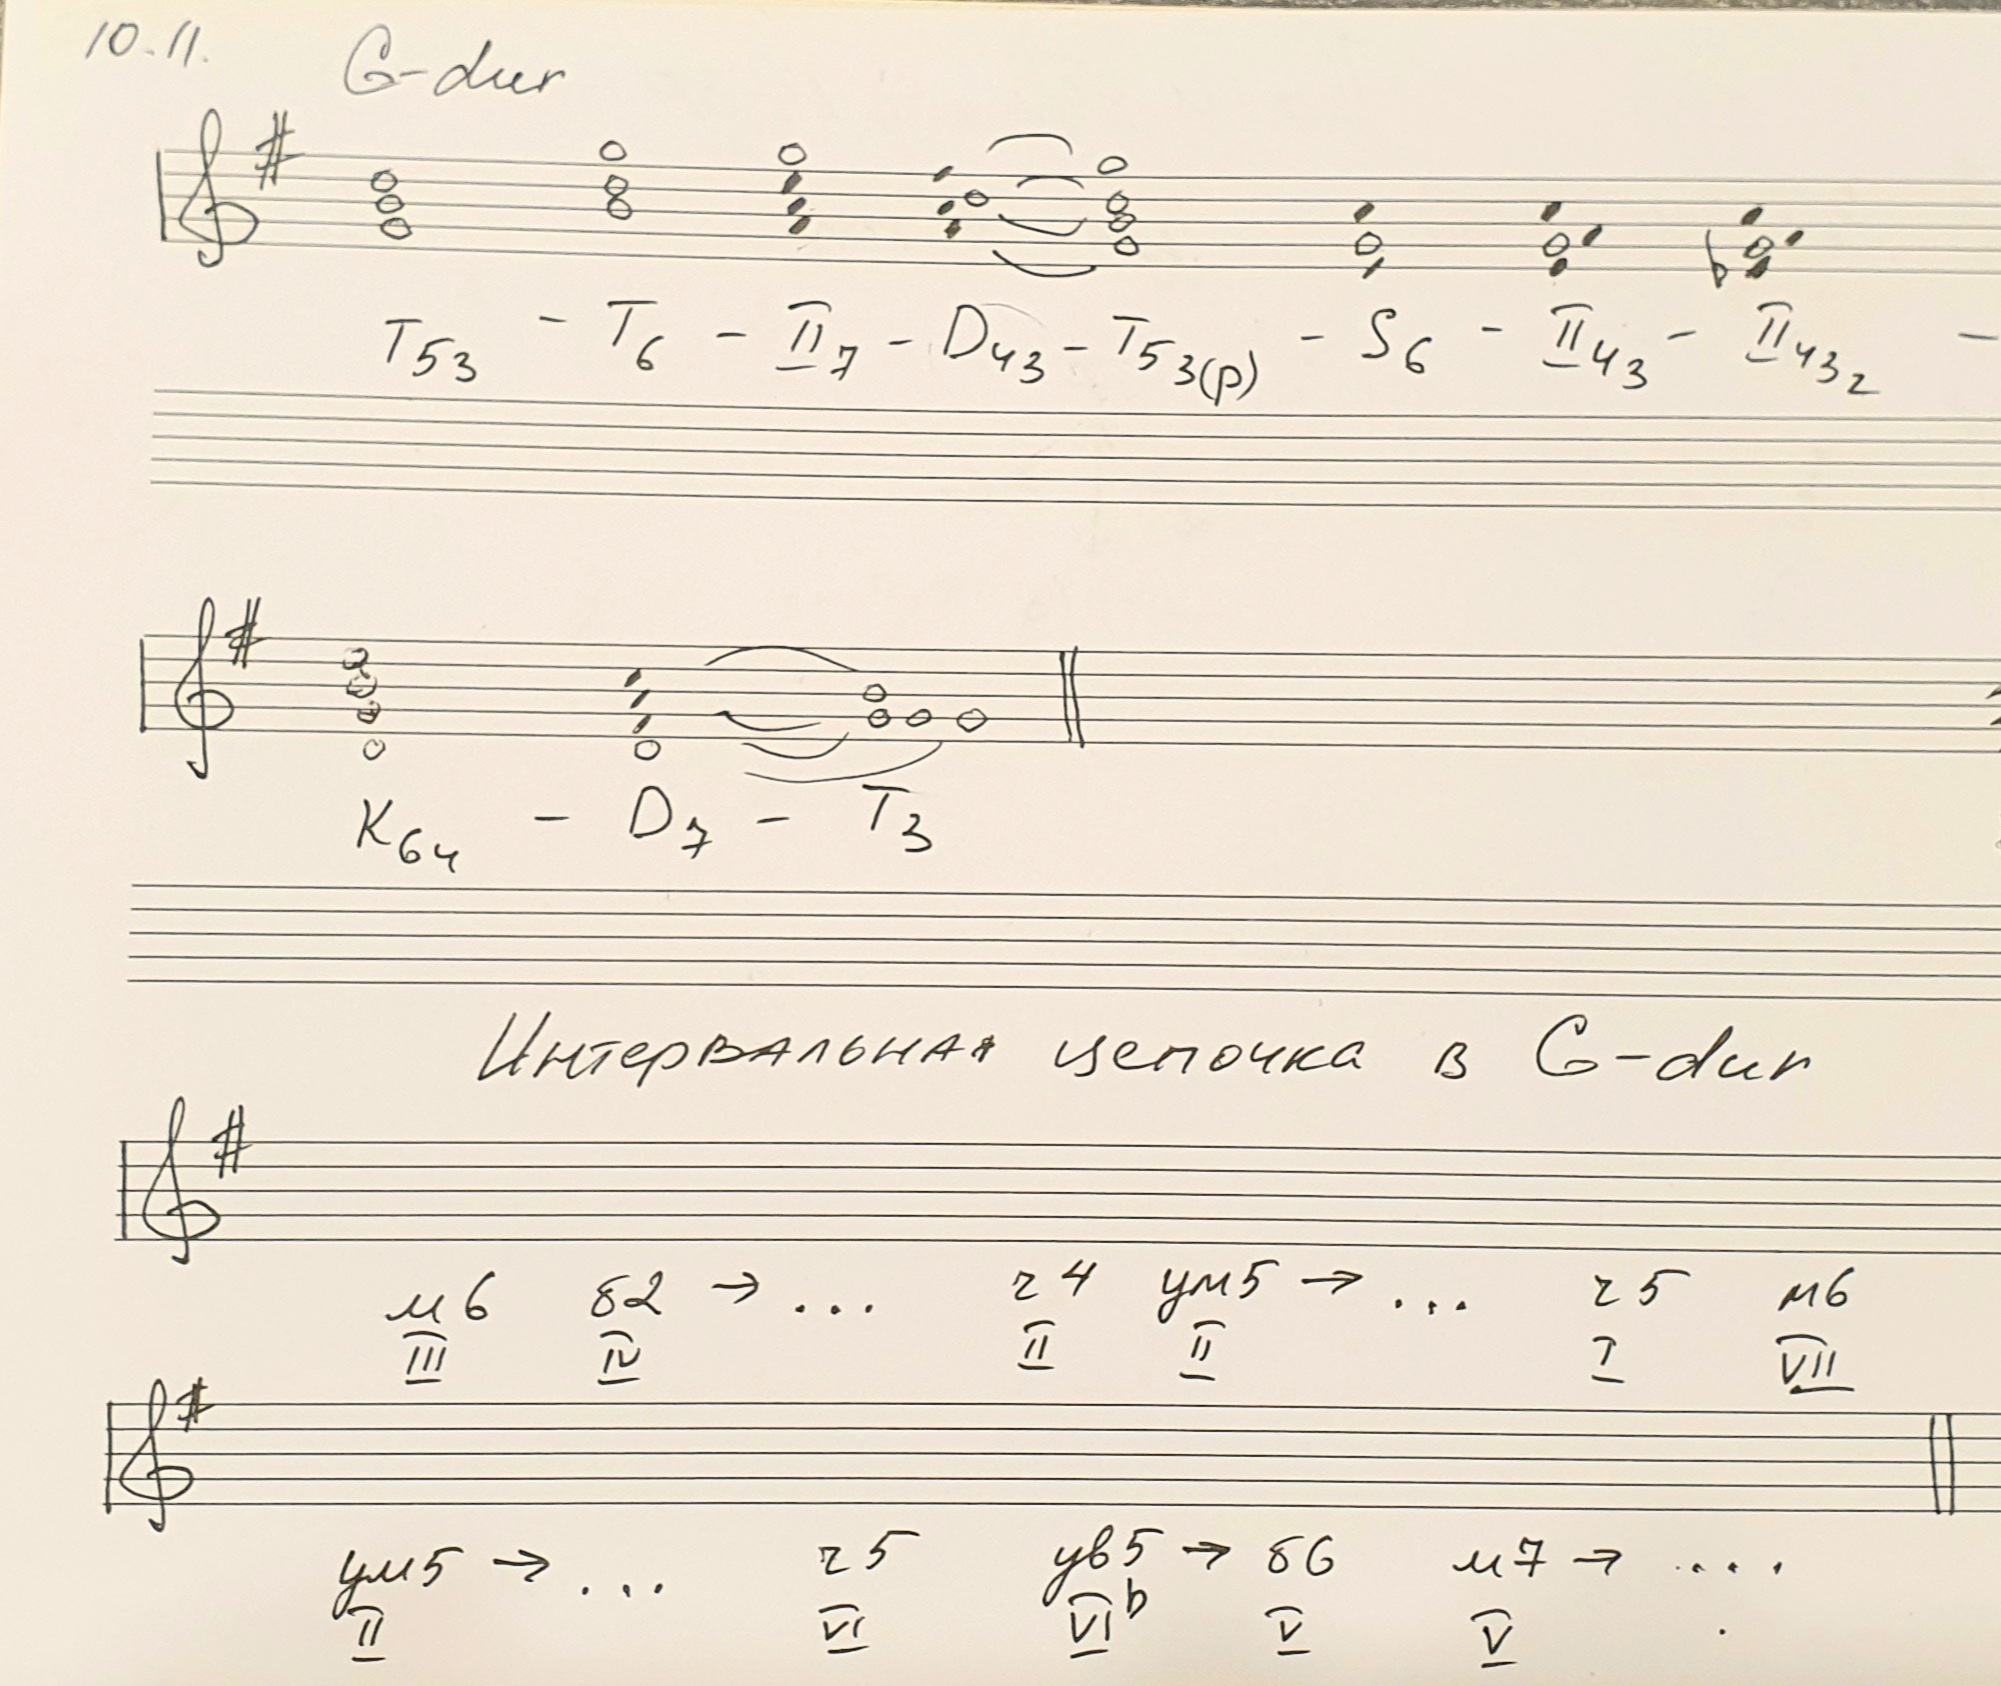 10.11. G-dur
T53 - T6 - II7 - D43 - T53(р) - S6 - II43 - II432 -
K64 - D7 - T3
Интервальная цепочка в G-dur
м6 б2 → ... ч4 ум5 → ... ч5 м6
III IV II II I VII
ум5 → ... ч5 ув5 → б6 м7 → ....
II VI VIb V V